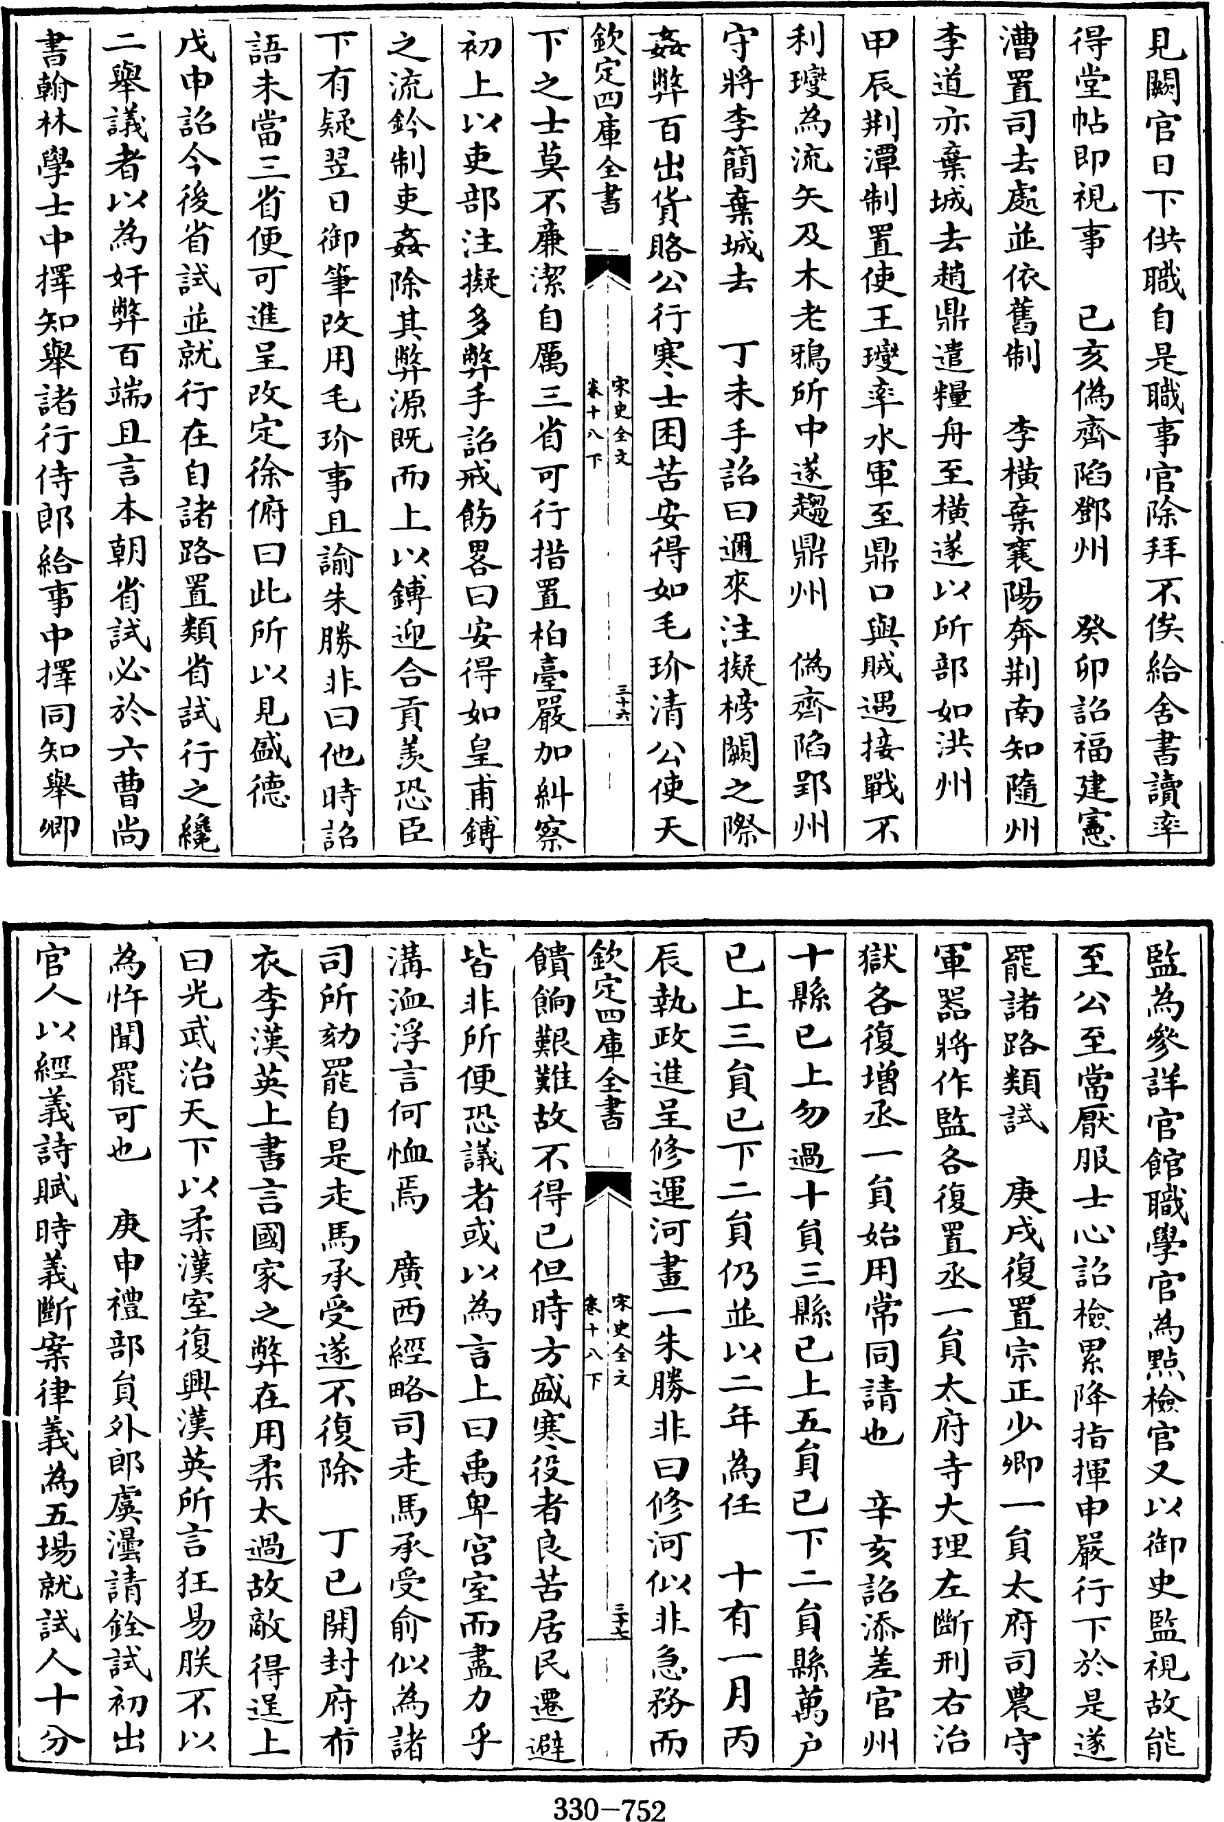 見闕官日下供職自是職事官除拜不俟給舍書讀率
得堂帖即視事　已亥偽齊陷鄧州　癸卯詔福建憲
漕置司去處並依舊制　李橫棄襄陽奔荆南知隨州
李道亦棄城去趙鼎遣糧舟至橫遂以所部如洪州
甲辰荆潭制置使王𤫉率水軍至鼎口與賊遇接戰不
利𤫉為流矢及木老鴉所中遂趨鼎州　偽齊陷郢州
守將李簡棄城去　丁未手詔曰邇來注擬榜闕之際
姦弊百出貨賂公行寒士困苦安得如毛玠清公使天
欽定四庫全書
宋史全文
卷十八下
三十六
下之士莫不廉潔自厲三省可行措置柏臺嚴加糾察
初上以吏部注擬多弊手詔戒飭畧曰安得如皇甫鎛
之流鈐制吏姦除其弊源既而上以鎛迎合貢羨恐臣
下有疑翌日御筆改用毛玠事且諭朱勝非曰他時詔
語未當三省便可進呈改定徐俯曰此所以見盛德
戊申詔今後省試並就行在自諸路置類省試行之纔
二舉議者以為奸弊百端且言本朝省試必於六曹尚
書翰林學士中擇知舉諸行侍郎給事中擇同知舉卿
監為參詳官館職學官為點檢官又以御史監視故能
至公至當厭服士心詔檢累降指揮申嚴行下於是遂
罷諸路類試　庚戌復置宗正少卿一員太府司農守
軍器將作監各復置丞一員太府寺大理左斷刑右治
獄各復增丞一員始用常同請也　辛亥詔添差官州
十縣已上勿過十員三縣已上五員已下二員縣萬户
已上三員已下二員仍並以二年為任　十有一月丙
辰執政進呈修運河畫一朱勝非曰修河似非急務而
欽定四庫全書
宋史全文
卷十八下
三十七
饋餉艱難故不得已但時方盛寒役者良苦居民遷避
皆非所便恐議者或以為言上曰禹卑宮室而盡力乎
溝洫浮言何恤焉　廣西經略司走馬承受俞似為諸
司所劾罷自是走馬承受遂不復除　丁已開封府布
衣李漢英上書言國家之弊在用柔太過故敵得逞上
曰光武治天下以柔漢室復興漢英所言狂易朕不以
為忤聞罷可也　庚申禮部員外郎虞澐請銓試初出
官人以經義詩賦時義斷案律義為五場就試人十分
330-752